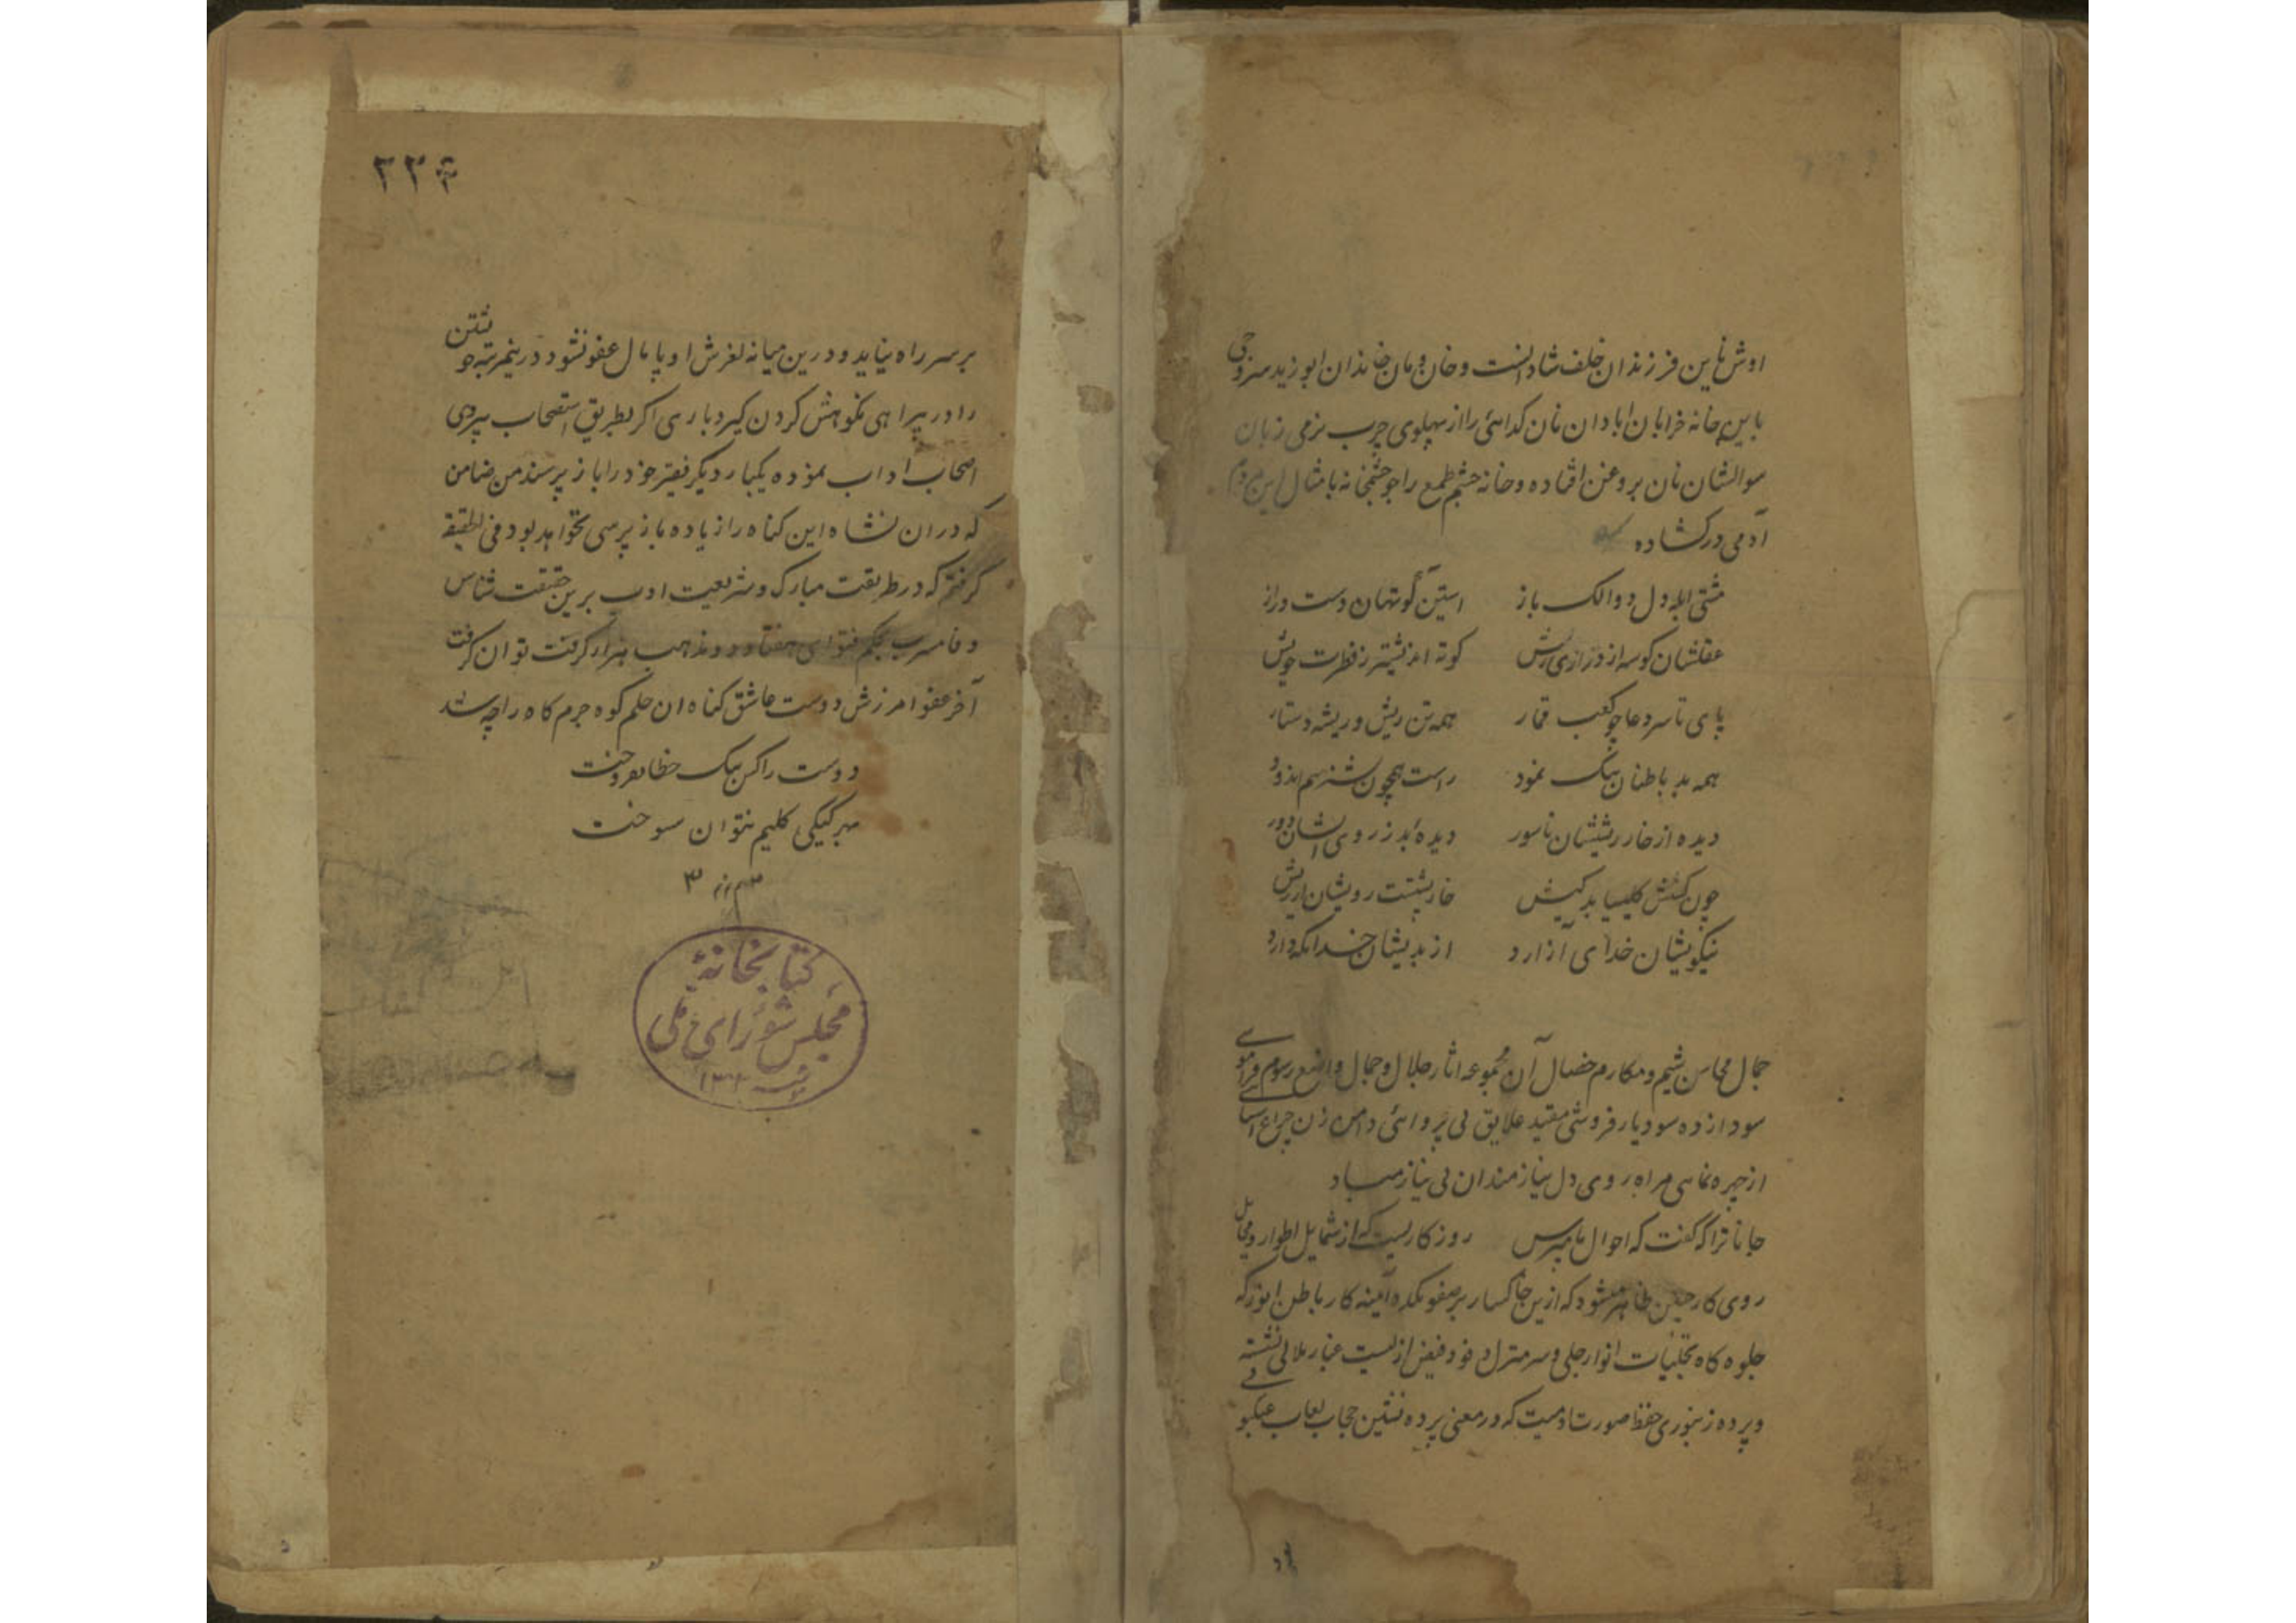 اوش باین فرزندان خلف شاد است و خان و مان خاندان ابو زید سروجی
باین خانه خرابان ابادان نان کدائی را از پهلوی چرب نرمی زبان
سوالشان نان بروغن افتاده و خانه چشم طمع را جو چشمخانه بامثال این مردم
آدمی در کشاده
مشتی ابله دل دوالک باز
استین کوتهان دست دراز
عقلشان کوسه از درازی ریش
کوته اندیشتر ز فطرت خویش
پای تا سر دغا چو کعب قمار
همه تن ریش و ریشه دستار
همه بد باطنان نیک نمود
راست همچون
دیده از خار ریششان ناسور
دیدهٔ بد ز روی ایشان دور
چون کشیش کلیسیا بد کیش
خارپشتت رویشان از ریش
نیکویشان خدای آزارد
از بدیشان خدا نکه دارد
جمال محاسن شیم و مکارم خصال آن مجموعه اثار جلال و جمال واضع رسوم فراموشی
سودازده سود یار فروشی مقید علایق بی پروائی دامن زن چراغ
از چهره نمایی مراه روی دل نیازمندان بی نیاز مباد
جانا ترا که کفت که احوال ما مپرس روزکاریست که از شمایل اطوار و مخایل
روی کار چنین ظاهر میشود که ازین خاکسار بر صفوتکده آینه کار باطن انور که
جلوه کاه تجلیات انوار جلی و سر منزل وفود فیض ازلیست غبار ملالی نشسته
و پرده زنبوری حفظ صورت که در معنی پرده نشین حجاب لعاب عنکبو
۲۲۴
بر سر راه نیاید و درین میانه لغزش او پا مال عفو نشود درینمرتبه خویشتن
را در پیراهی نکوهش کردن کیرد باری اکر بطریق استصحاب پیروی
اصحاب اداب نموده یکبار دیکر فقیر خود را باز پرسند من ضامن
که در ان نشاه این کناه را زیاده باز پرسی نخواهد بود فی الحقیقه
کرفتم که در طریقت مبارک و شریعت ادب برین حقیقت شناس
وفا مشرب بحکم فتوای هفتاد و دو مذهب هزار کرفت توان کرفت
آخر عفو امرزش دوست عاشق کناه ان حلم کوه جرم کاه را چه شد
دوست را کس بیک خطا نفروخت
بهر کیکی کلیم نتوان سوخت
کتابخانهٔ
مجلس شورای ملی